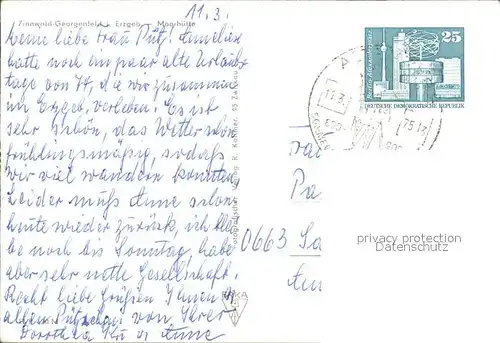 Zinnwald-Georgenfeld Erzgeb. Moorhütte
11.3.
Meine liebe Frau Pütz, Anneliese
hatte noch ein paar alte Urlaubs-
tage von 74, die wir zusammen
im Erzgeb. verleben. Es ist
sehr schön, das Wetter schon
frühlingsmäßig, sodaß
wir viel wandern konnten.
Leider muß Anne schon
heute wieder zurück, ich blei-
be noch bis Sonntag, habe
aber sehr nette Gesellschaft.
Recht liebe Grüße Ihnen u.
allen von Ihrer
Dorothea u. Anne
25
Berlin-Alexanderplatz
DEUTSCHE DEMOKRATISCHE REPUBLIK
privacy protection
Datenschutz